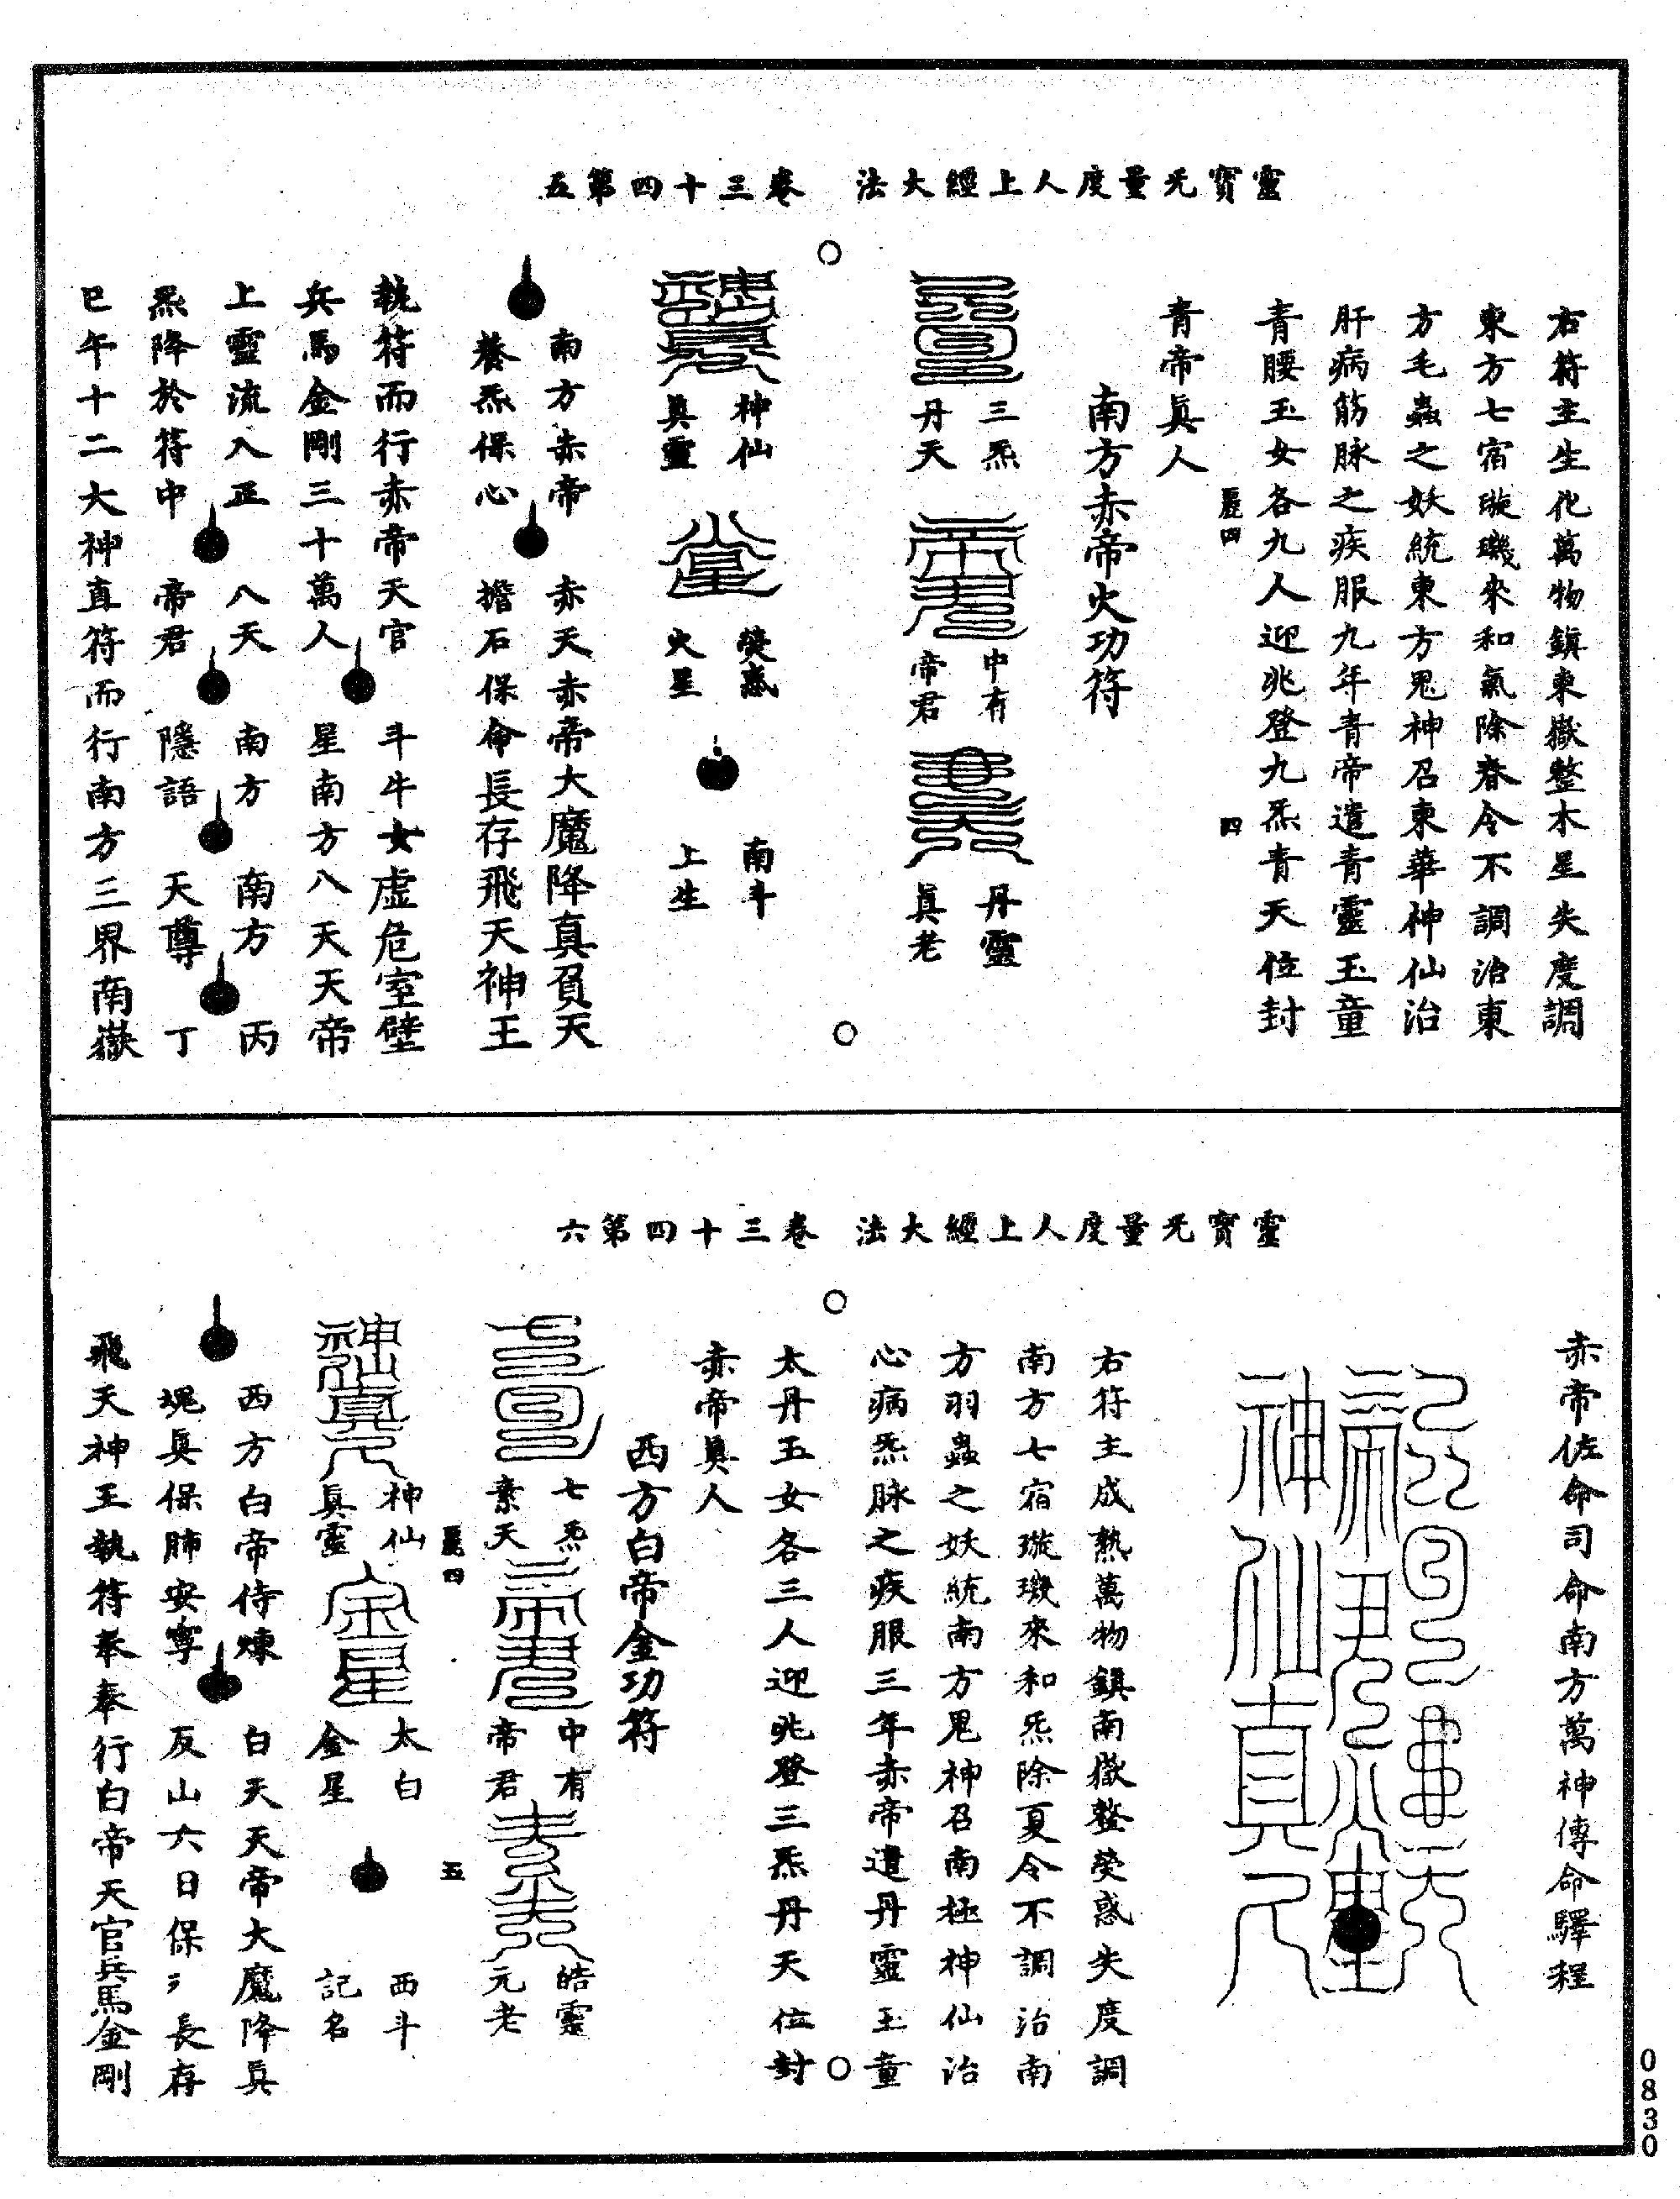 靈寶无量度人上經大法　卷三十四第五
右符主生化萬物鎮東嶽整木星失度調
東方七宿璇璣來和氣除春令不調治東
方毛蟲之妖統東方鬼神召東華神仙治
肝病筋脉之疾服九年青帝遣青靈玉童
青腰玉女各九人迎兆登九炁青天位封
四
青帝真人
南方赤帝火功符
三炁
丹天
中有
帝君
丹靈
真老
神仙
真靈
熒惑
火星
南斗
上生
南方赤帝
養炁保心
赤天赤帝大魔降真負天
擔石保命長存飛天神王
執符而行赤帝天官
兵馬金剛三十萬人
斗牛女虛危室壁
星南方八天天帝
上靈流入正
炁降於符中
八天
帝君
南方
隱語
南方
天尊
丙
丁
巳午十二大神直符而行南方三界南嶽
靈寶无量度人上經大法　卷三十四第六
赤帝佐命司命南方萬神傳命驛程
右符主成熟萬物鎮南嶽整熒惑失度調
南方七宿璇璣來和炁除夏令不調治南
方羽蟲之妖統南方鬼神召南極神仙治
心病炁脉之疾服三年赤帝遣丹靈玉童
太丹玉女各三人迎兆登三炁丹天位封
赤帝真人
西方白帝金功符
七炁
素天
中有
帝君
皓靈
元老
五
神仙
真靈
太白
金星
西斗
記名
西方白帝侍煉
魂真保肺安寧
白天天帝大魔降真
反山六日保彡長存
飛天神王執符奉奉行白帝天官兵馬金剛
0830